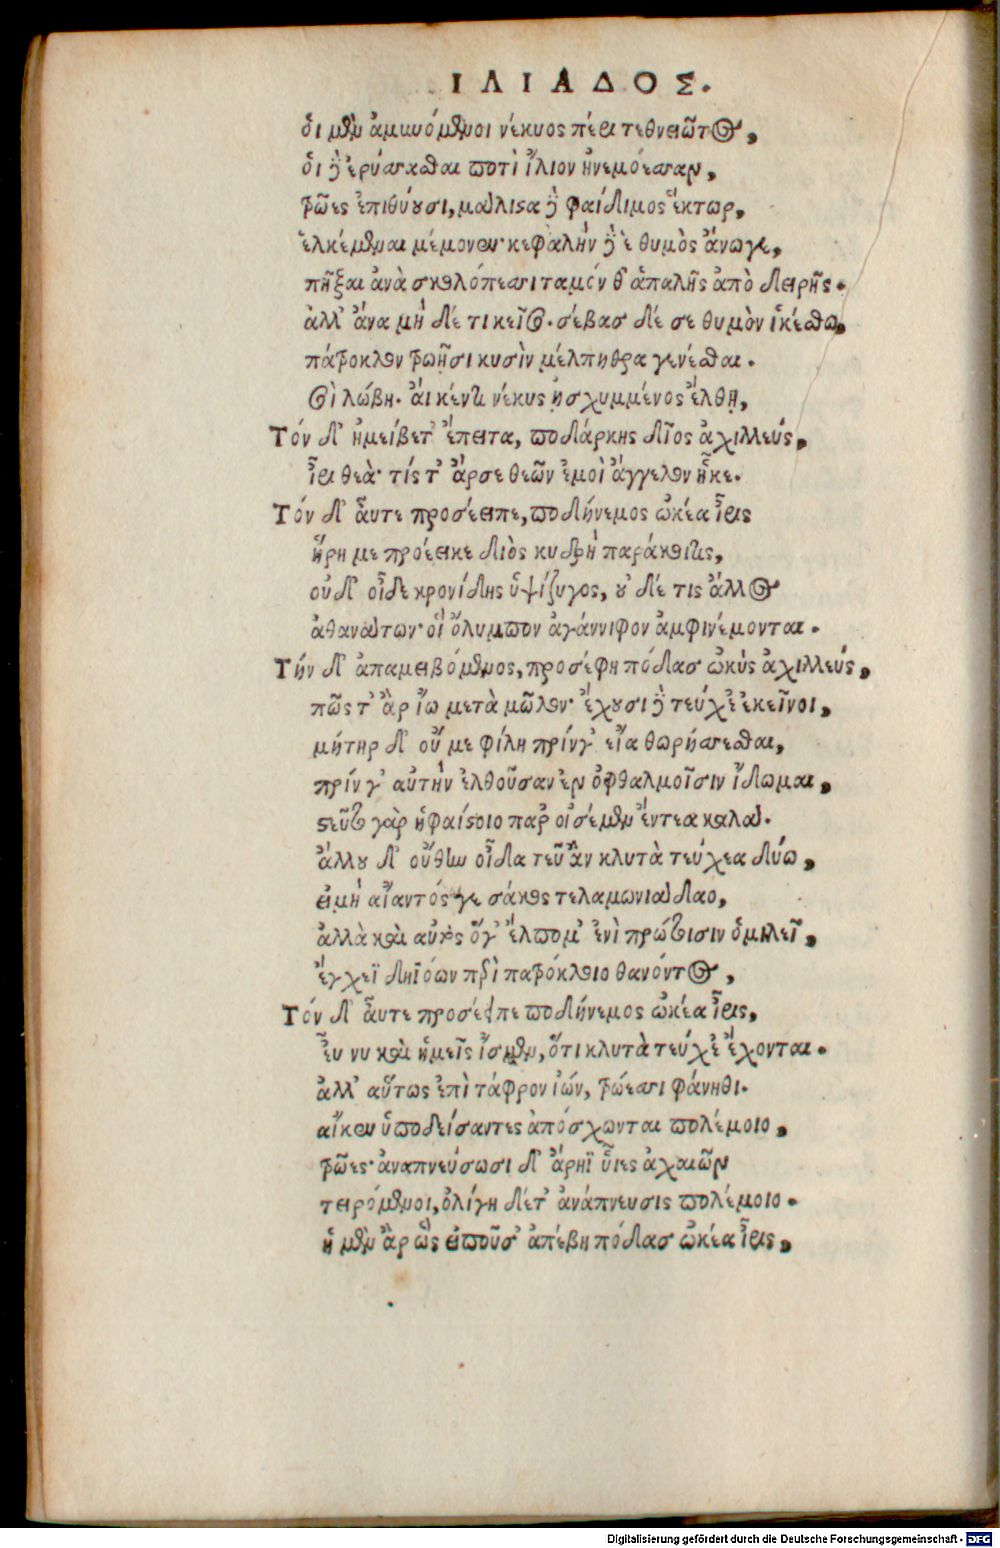 ΙΛΙΑΔΟΣ.
ὁι μὲν ἀμυνόμενοι νέκυος πέρι τεθνειῶτος,
ὁι δ' ἐρύσσασθαι ποτὶ ἴλιον ἠνεμόεσσαν,
τρῶες ἐπιθύουσι, μάλιστα δὲ φαίδιμος ἕκτωρ,
ἑλκέμεναι μέμονεν· κεφαλὴν δέ ἑ θυμὸς ἄνωγε,
πῆξαι ἀνὰ σκολόπεσσι ταμόνθ' ἁπαλῆς ἀπὸ δειρῆς.
ἀλλ' ἄνα μὴ δέ τι κεῖσο. σέβας δέ σε θυμὸν ἱκέσθω,
πάτροκλον τρωῇσι κυσὶν μέλπηθρα γενέσθαι.
σοὶ λώβη. ἀι κέν τι νέκυς ᾐσχυμμένος ἔλθῃ,
Τόν δ' ἠμείβετ' ἔπειτα, ποδάρκης δῖος ἀχιλλεύς,
ἶρι θεὰ· τίς τ' ἄρ σε θεῶν ἐμοὶ ἄγγελον ἧκε.
Τόν δ' ἆυτε προσέειπε, ποδήνεμος ὠκέα ἶρις
ἥρη με προέεικε διὸς κυδρὴ παράκοιτις,
οὐδ' οἶδε κρονίδης ὑψίζυγος, οὐ δέ τις ἄλλος
ἀθανάτων· οἳ ὄλυμπον ἀγάννιφον ἀμφινέμονται.
Τήν δ' ἀπαμειβόμενος, προσέφη πόδας ὠκὺς ἀχιλλεύς,
πῶς τ' ἂρ ἴω μετὰ μῶλον· ἔχουσι δὲ τεύχε' ἐκεῖνοι,
μήτηρ δ' οὔ με φίλη πρίν γ' εἴα θωρήσσεσθαι,
πρίν γ' αὐτὴν ἐλθοῦσαν ἐν ὀφθαλμοῖσιν ἴδωμαι,
στεῦτο γὰρ ἡφαίστοιο παρ' οἰσέμεν ἔντεα καλά.
ἄλλου δ' οὔθην οἶδα τεῦ ἂν κλυτὰ τεύχεα δύω,
εἰ μὴ αἴαντός γε σάκος τελαμωνιάδαο,
ἀλλὰ καὶ αὐτὸς ὅγ' ἔλπομ' ἐνὶ πρώτοισιν ὁμιλεῖ,
ἔγχεϊ δηϊόων περὶ πατρόκλοιο θανόντος,
Τόν δ' ἆυτε προσέειπε ποδήνεμος ὠκέα ἶρις,
ἐυ νυ καὶ ἡμεῖς ἴσμεν, ὅτι κλυτὰ τεύχε' ἔχονται.
ἀλλ' αὕτως ἐπὶ τάφρον ἰών, τρώεσσι φάνηθι.
αἴκεν ὑποδείσαντες ἀπόσχωνται πολέμοιο,
τρῶες· ἀναπνεύσωσι δ' ἄρήϊ ὗιες ἀχαιῶν
τειρόμενοι, ὀλίγη δέτ' ἀνάπνευσις πολέμοιο.
ἡ μὲν ἂρ ὣς εἰποῦσ' ἀπέβη πόδας ὠκέα ἶρις,
Digitalisierung gefördert durch die Deutsche Forschungsgemeinschaft - DFG